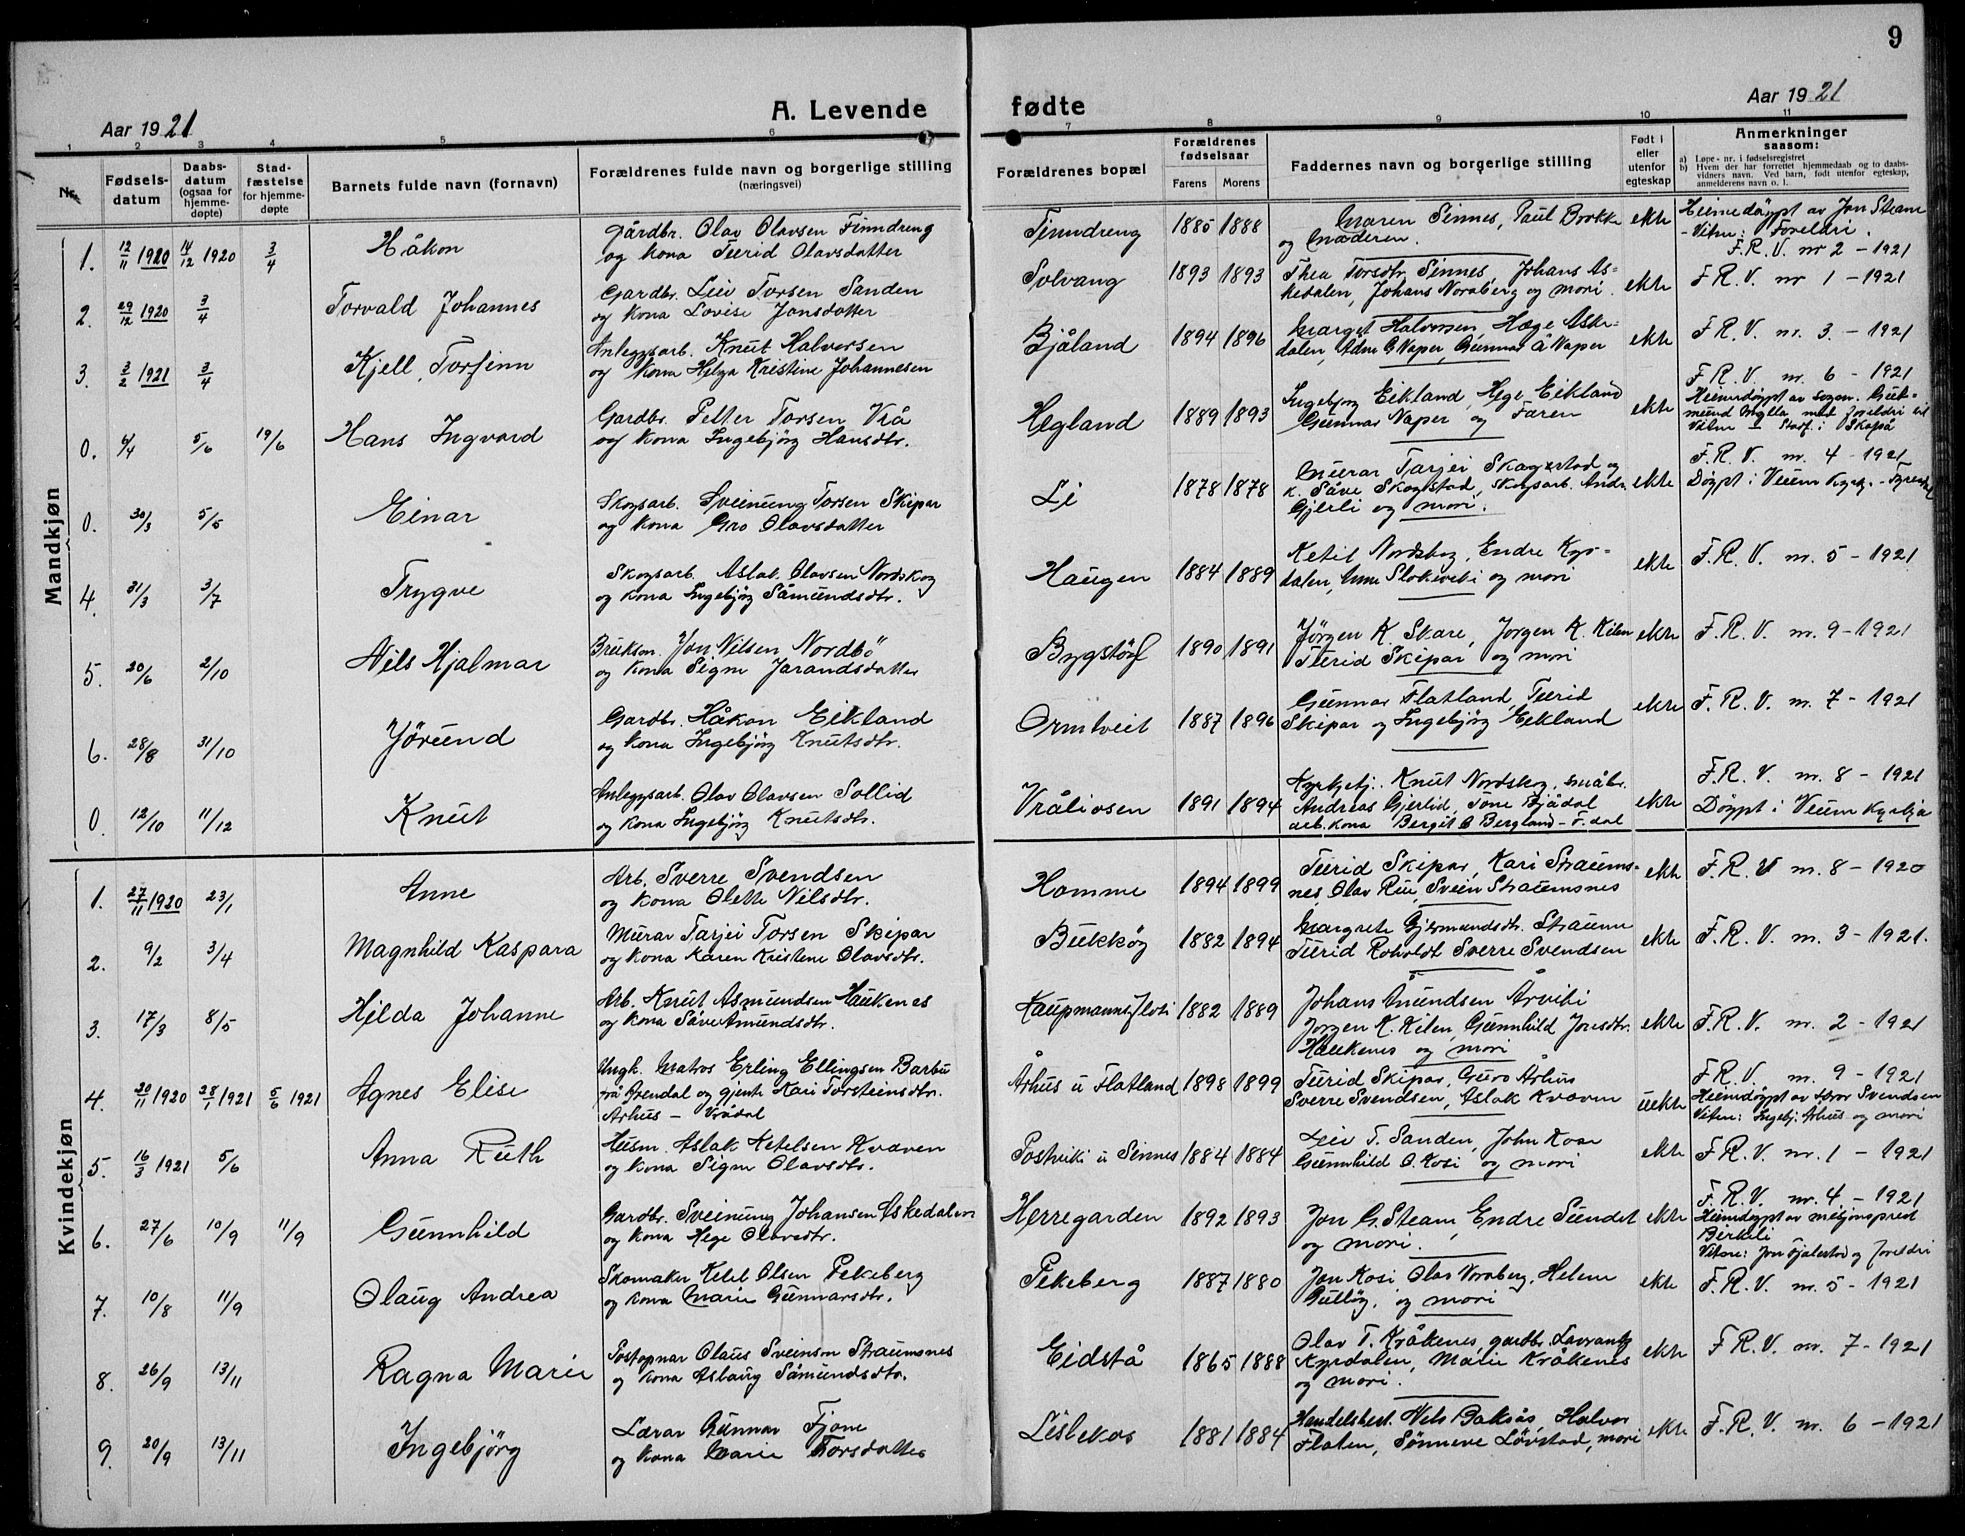 9
A. Levende fødte
Aar 1921
Aar 1921
1 2 3 4 5 6 7 8 9 10 11
Nr.
Fødsels-
datum
Daabs-
datum
(ogsaa for
hjemme-
døpte)
Stad-
fæstelse
for hjemme-
døpte
Barnets fulde navn (fornavn)
Forældrenes fulde navn og borgerlige stilling
(næringsvei)
Forældrenes bopæl
Forældrenes
fødselsaar
Farens Morens
Faddernes navn og borgerlige stilling
Født i
eller
utenfor
egteskap
Anmerkninger
saasom:
a) Løpe-nr. i fødselsregistret
b) Hvem der har forrettet hjemmedaab og to daabs-
vidners navn. Ved barn, født utenfor egteskap,
anmelderens navn o. l.
Mandkjøn
1. 12/11 1920 14/12 1920 3/4 Håkon
Gårdbr. Olav Olavsen Finndreng
og kona Turid Olavsdatter
Finndreng 1885 1888
Maren Sinnes, Paul Brokke
og Moderen.
ekte
Heimedöypt av Jon Steane
- Vitne: Foreldri.
F.R.V. nr 2 - 1921
2. 29/12 1920 3/4 Torvald Johannes
Gardbr. Leiv Torsen Sanden
og kona Lovise Jonsdatter
Solvang 1893 1893
Thea Torsdtr. Sinnes, Johans As-
kedalen, Johans Noraberg og mori.
ekte
F.R.V. nr 1 - 1921
3. 3/2 1921 3/4 Kjell Torfinn
Anleggsarb. Knut Halversen
og kona Helga Kristine Johannesen
Bjåland 1894 1896
Margit Halvorsen, Hæge Aske-
dalen, Adne G Naper, Gunnar Å Naper
ekte
F.R.V. nr. 3. - 1921
0. 4/4 5/6 19/6 Hans Ingvard
Gardbr. Petter Torsen Vrå
og kona Ingebjörg Hansdtr.
Hegland 1889 1893
Ingebjörg Eikland, Hege Eikland
Gunnar Naper og Faren
ekte
F.R.V. nr. 6 - 1921
Heimedöypt av sogn. Gud-
mund Ingila med foreldri til
Vitne - Stadf. i Skafså
0. 30/3 5/5 Einar
Skogsarb. Sveinung Torsen Skipar
og kona Gro Olavsdatter
Li 1878 1878
Murar Tarjei Skogstad og
k. Såve Skogstad, Skogsarb. Andr.
Gjerli og mori.
ekte
F.R.V. nr. 4 - 1921
Döypt i Veum Kyrkj. - Fyresdal
4. 31/3 3/7 Trygve
Skogsarb. Aslak Olavsen Nordskog
og kona Ingebjörg Såmundsdtr.
Haugen 1884 1889
Ketil Nordskog, Endre Kyr-
dalen, Anne Slokviki og mori
ekte
F.R.V. nr. 5 - 1921
5. 20/6 2/10 Nils Hjalmar
Bruksm. Jon Nilsen Nordbö
og kona Signe Jarandsdatter
Bygstöyl 1890 1891
Jörgen K. Skare, Jorgen K. Kilen
Turid Skipar og mori
ekte
F.R.V. nr. 9 - 1921
6. 28/8 31/10 Jörund
Gardbr. Håkon Eikland
og kona Ingebjörg Knutsdtr.
Ormtveit 1887 1896
Gunnar Flatland, Turid
Skipar og Ingebjörg Eikland
ekte
F.R.V. nr. 7 - 1921
0. 12/10 11/12 Knut
Anleggsarb. Olav Olavsen Sollid
og kona Ingebjörg Knutsdtr.
Vråliosen 1891 1894
Kyrkjetj. Knut Nordskog, småbr.
Andreas Gjerlid, Tone Bjådal
arb.kona Bergit O Bergland - F.dal
ekte
F.R.V. nr. 8 - 1921
Döypt i Veum Kyrkja
Kvindekjøn
1. 27/11 1920 23/1 Anne
Arb. Sverre Svendsen
og kona Olette Nilsdtr.
Homme 1894 1899
Turid Skipar, Kari Straums-
nes, Olav Rui, Svein Straumsnes
ekte
F.R.V nr. 8 - 1920
2. 9/2 3/4 Magnhild Kaspara
Murar Tarjei Torsen Skipar
og kona Karen Kristene Olavsdtr.
Bukkøy 1882 1894
Margrete Gjermundsdtr. Straume
Turid Roholdt Sverre Svendsen
ekte
F.R.V. nr. 3 - 1921.
3. 17/3 8/5 Hilda Johanne
Arb. Knut Asmundsen Haukenes
og kona Såve Åmundsdtr.
1882 1889
Johans Åmundsen Årviki
Jorgen K. Kilen, Gunnhild Jonsdtr.
Haukenes og mori
ekte
F.R.V. nr. 2 - 1921
4. 20/11 1920 28/1 1921 5/6 1921 Agnes Elise
Ungk. Matros Erling Ellingsen Barbu
frå Arendal og gjenta Kari Torsteinsdtr.
Århus - Vrådal
Århus u Flatland 1898 1899
Turid Skipar, Guro Århus
Sverre Svendsen, Aslak Kvæven
uekte
F.R.V. nr. 9 - 1921
Heimdöypt av Sverr Svendsen
Vitne: Ingebj. Århus og mori
5. 16/3 1921 5/6 Anna Ruth
Husm. Aslak Ketelsen Kvaven
og kona Signe Olavsdtr.
Postviki u Sinnes 1884 1884
Leiv T. Sanden, John Kosi
Gunnhild O. Kosi og mori
ekte
F.R.V. nr. 1 - 1921
6. 27/6 10/9 11/9 Gunnhild
Gardbr. Sveinung Johansen Askedalen
og kona Hege Olavsdtr.
Herregarden 1892 1893
Jon G. Steane, Endre Sundet
og mori.
ekte
F.R.V. nr. 4 - 1921
Heimdöypt av misjonsprest
Birkeli
Vitne: Jon Fjalestad og foreldri
7. 10/8 11/9 Olaug Andrea
Skomaker Ketel Olsen Pekeberg
og kona Marie Gunnarsdtr.
Pekeberg 1887 1880
Jon Kosi Olav Noraberg, Helene
Gulløy, og mori
ekte
F.R.V. nr. 5 - 1921
8. 26/9 13/11 Ragna Marie
Postopnar Olaus Sveinson Straumsnes
og kona Aslaug Såmundsdtr.
Eidstå 1865 1888
Olav T. Kråkenes, gardbr. Lavrants
Kyrdalen, Marie Kråkenes
og mori.
ekte
F.R.V. nr. 7 - 1921
9. 20/9 13/11 Ingebjörg
Lærar Gunnar Fjone
og kona Marie Torsdatter
Lislekos 1881 1884
Handelsbest. Nils Baksås, Halvor
Flaten, Sönneve Lövstad, mori
ekte
F.R.V. nr. 6 - 1921